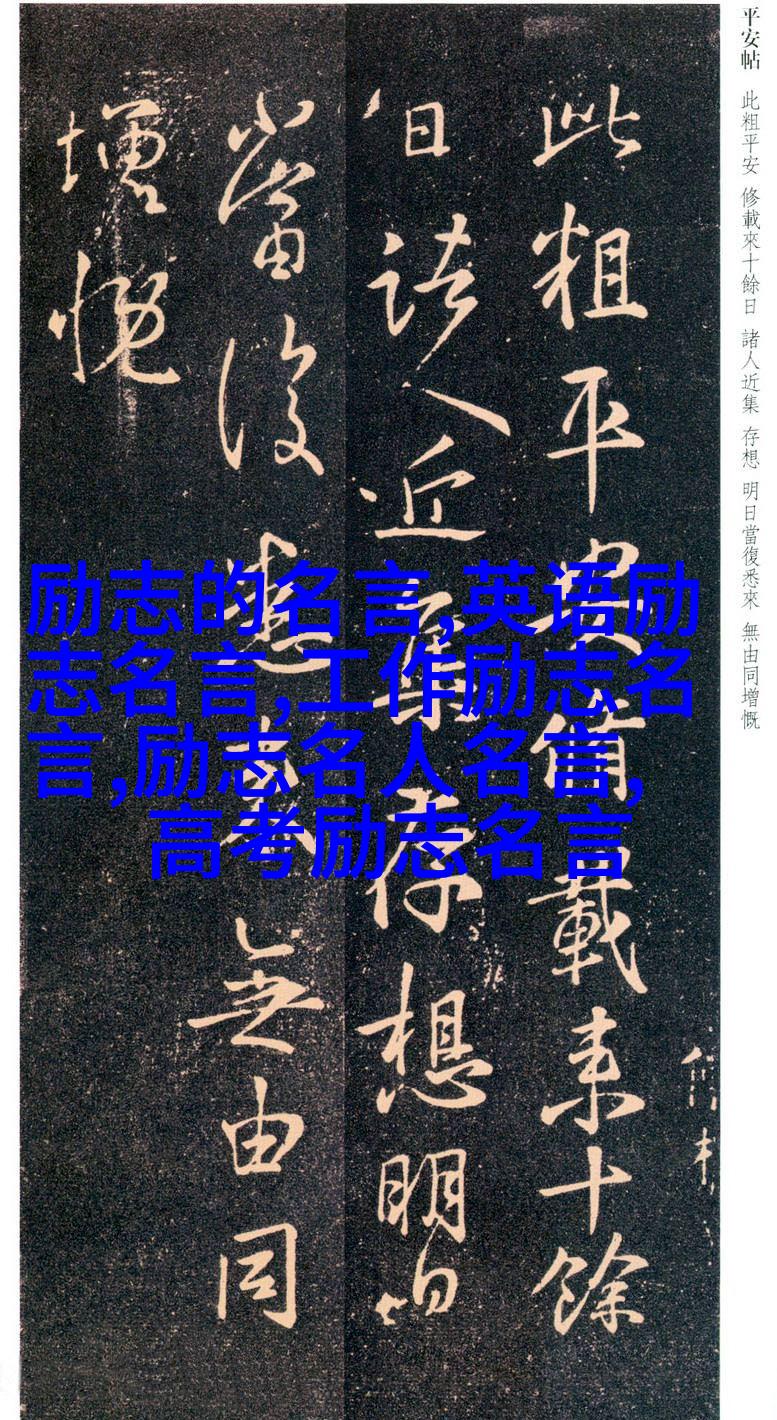 平安帖 此粗平安 修載來十餘日 諸人近集 存想 明日當復悉來 無由同增慨
此粗平安脩載来十餘
日諸人近集存想明日
當復悉来無由同
增慨
励志的名言,英语励
志名言,工作励志名
言,励志名人名言,
高考励志名言